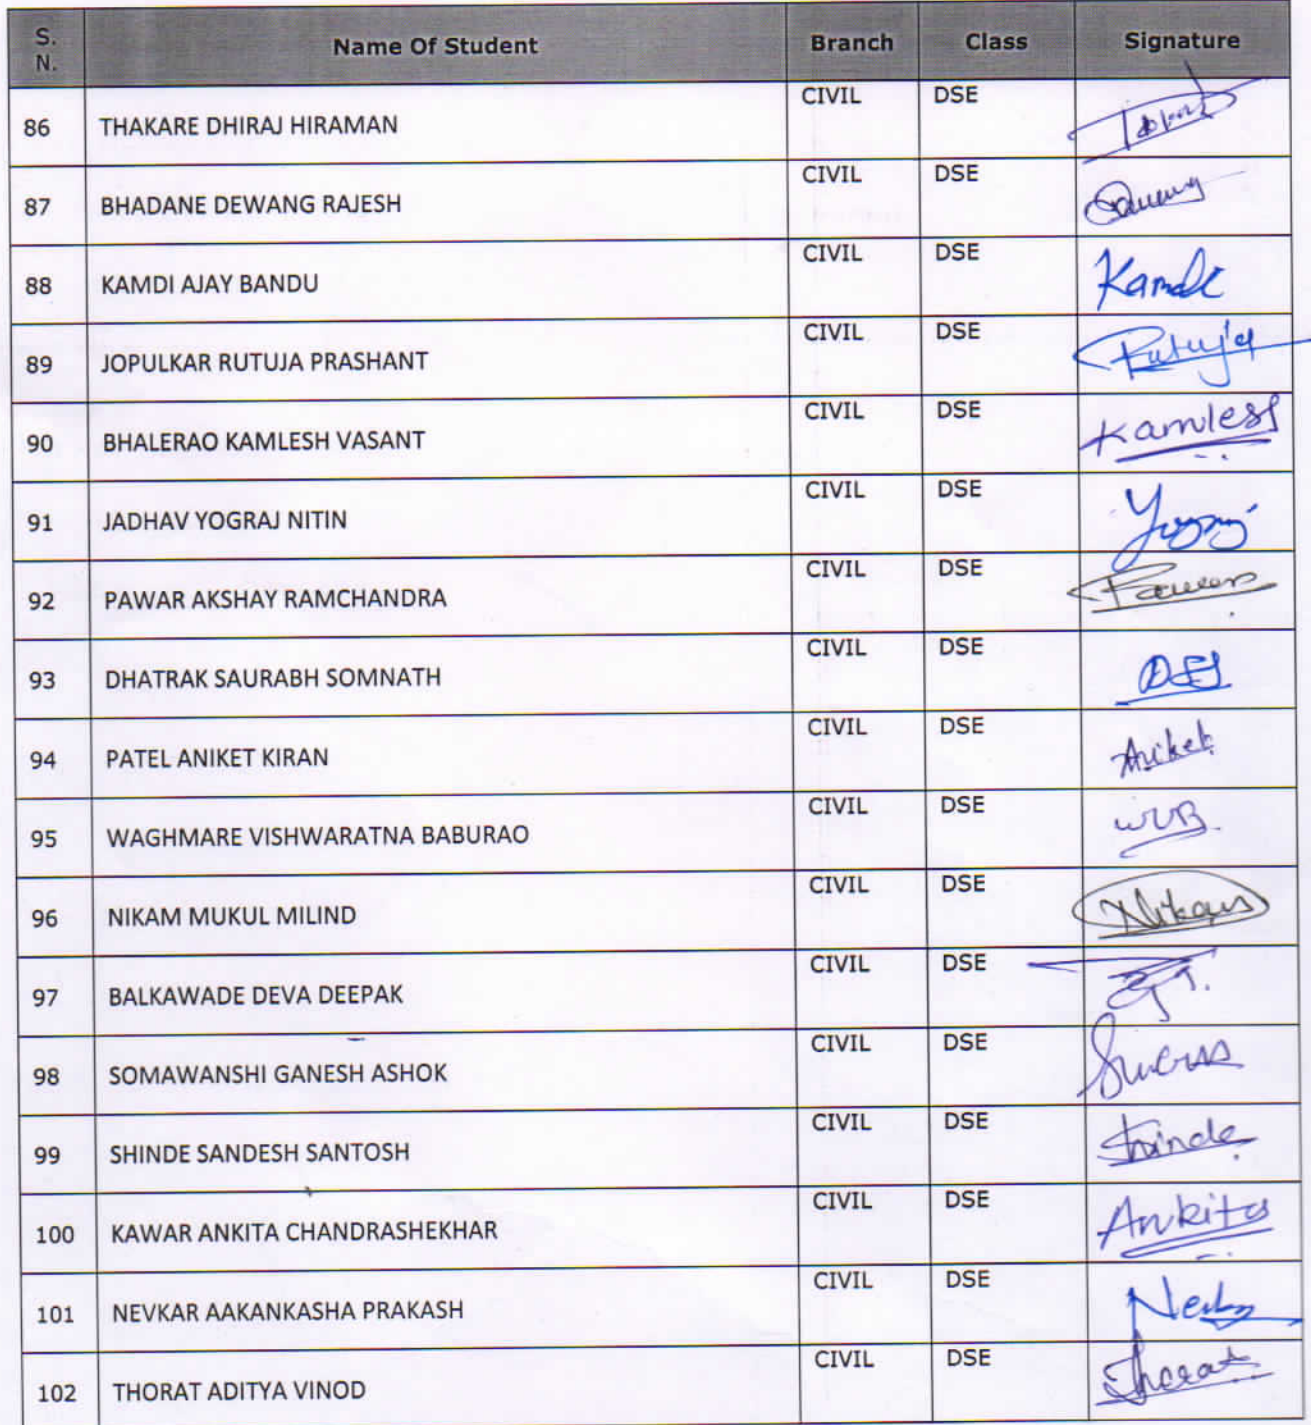 S. N. Name Of Student Branch Class Signature
86 THAKARE DHIRAJ HIRAMAN CIVIL DSE
87 BHADANE DEWANG RAJESH CIVIL DSE
88 KAMDI AJAY BANDU CIVIL DSE Kamdi
89 JOPULKAR RUTUJA PRASHANT CIVIL DSE Rutuja
90 BHALERAO KAMLESH VASANT CIVIL DSE Kamlesh
91 JADHAV YOGRAJ NITIN CIVIL DSE
92 PAWAR AKSHAY RAMCHANDRA CIVIL DSE
93 DHATRAK SAURABH SOMNATH CIVIL DSE
94 PATEL ANIKET KIRAN CIVIL DSE Aniket
95 WAGHMARE VISHWARATNA BABURAO CIVIL DSE WVB
96 NIKAM MUKUL MILIND CIVIL DSE Nikam
97 BALKAWADE DEVA DEEPAK CIVIL DSE
98 SOMAWANSHI GANESH ASHOK CIVIL DSE
99 SHINDE SANDESH SANTOSH CIVIL DSE Shinde
100 KAWAR ANKITA CHANDRASHEKHAR CIVIL DSE Ankita
101 NEVKAR AAKANKASHA PRAKASH CIVIL DSE
102 THORAT ADITYA VINOD CIVIL DSE Thorat